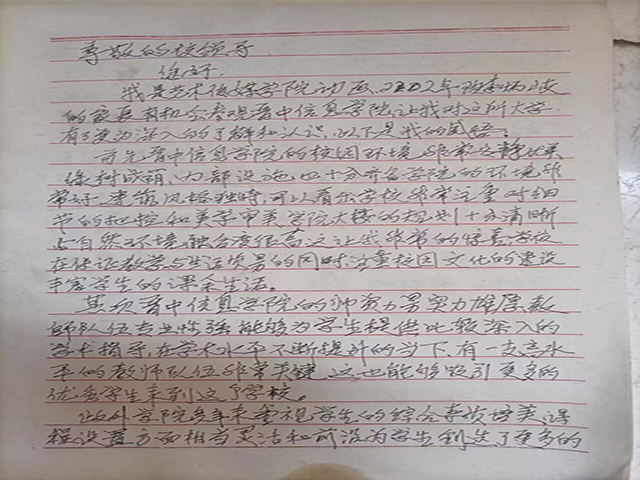 尊敬的校领导
您好.
我是艺术传媒学院动画2202年级
的家长有机会参观晋中信息学院,让我对这所大学
有了更为深入的了解和认识,以下是我的感悟。
首先晋中信息学院的校园环境非常安静优美
绿树成荫,内部设施也十分齐全学院的环境非
常好,建筑风格独特,可以看出学校非常注重对细
节的把控和美学审美学院大楼的规划十分清晰
与自然环境融合度很高这让我非常的惊喜学校
在保证教学与生活质量的同时注重校园文化的建设
丰富学生的课余生活。
其次晋中信息学院的师资力量实力雄厚教
师队伍专业性强能够为学生提供比较深入的
学术指导,在学术水平不断提升的当下,有一支高水
平的教师队伍非常关键这也能够吸引更多的
优秀学生来到这个学校。
此外学院多年来重视学生的综合素质培养,课
程设置方面相当灵活和前沿为学生创造了更多的